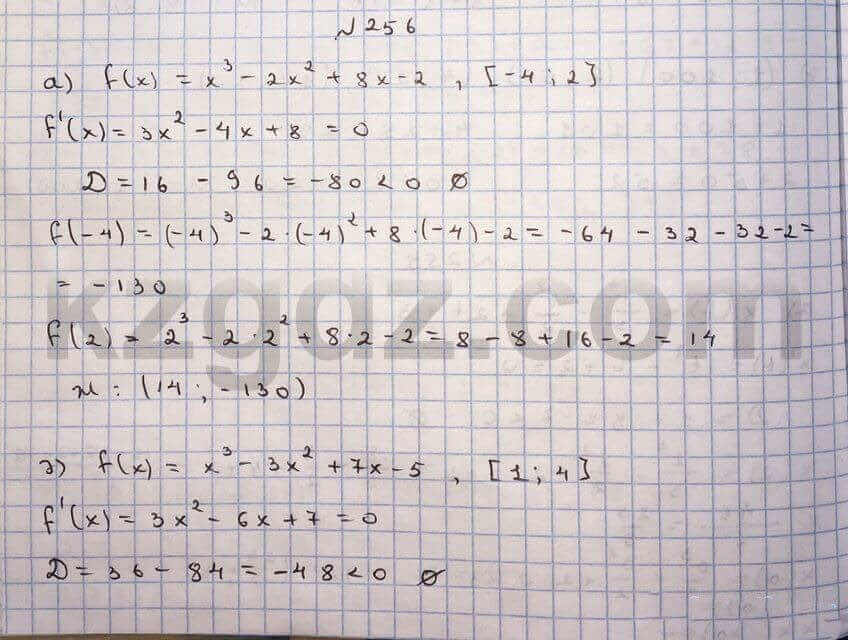 №256
а) f(x) = x³ - 2x² + 8x - 2 , [-4 ; 2]
f'(x) = 3x² - 4x + 8 = 0
D = 16 - 96 = -80 < 0 ∅
f(-4) = (-4)³ - 2·(-4)² + 8·(-4) - 2 = -64 - 32 - 32 - 2 =
= -130
f(2) = 2³ - 2·2² + 8·2 - 2 = 8 - 8 + 16 - 2 = 14
: (14 ; -130)
э) f(x) = x³ - 3x² + 7x - 5 , [1 ; 4]
f'(x) = 3x² - 6x + 7 = 0
D = 36 - 84 = -48 < 0 ∅
kzgaz.com